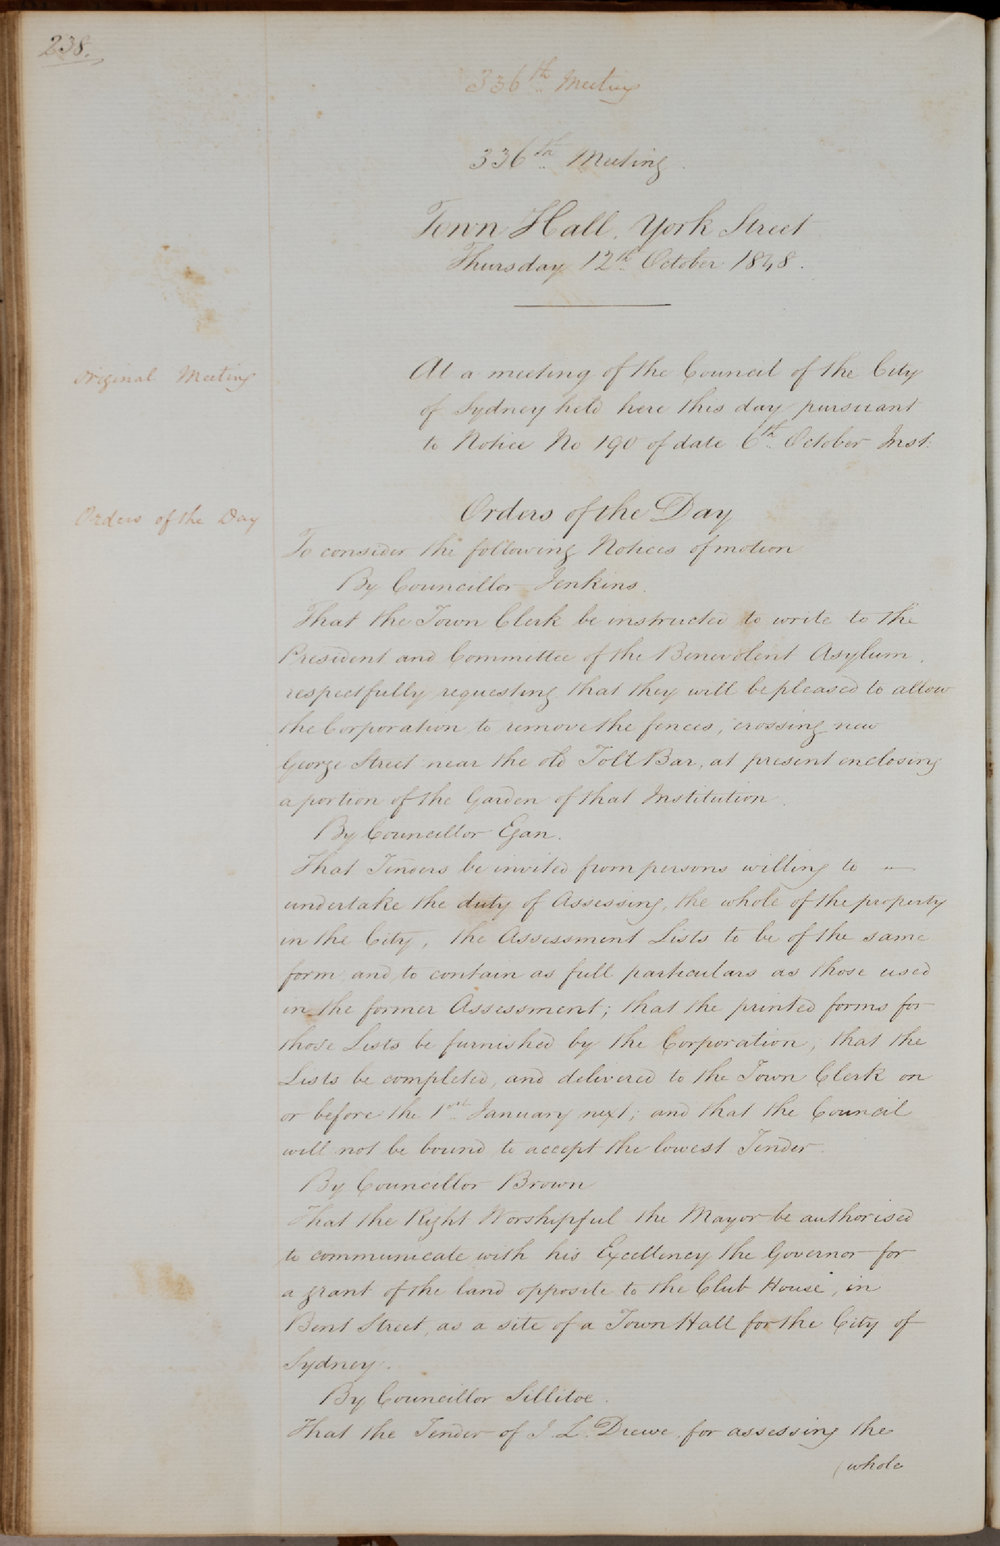 238.
336th Meeting
336th Meeting.
Town Hall, York Street
Thursday 12th October 1848.
Original Meeting
At a meeting of the Council of the City
of Sydney held here this day pursuant
to Notice No 190 of date 6th October Inst.
Orders of the Day
Orders of the Day
To consider the following Notices of motion
By Councillor Jenkins.
That the Town Clerk be instructed to write to the
President and Committee of the Benevolent Asylum,
respectfully requesting that they will be pleased to allow
the Corporation to remove the fences, crossing new
George Street near the old Toll Bar, at present enclosing
a portion of the Garden of that Institution.
By Councillor Egan.
That Tenders be invited from persons willing to —
undertake the duty of Assessing, the whole of the property
in the City, the Assessment Lists to be of the same
form and to contain as full particulars as those used
in the former Assessment; that the printed forms for
those Lists be furnished by the Corporation, that the
Lists be completed, and delivered to the Town Clerk on
or before the 1st January next; and that the Council
will not be bound to accept the lowest Tender.
By Councillor Brown
That the Right Worshipful the Mayor be authorised
to communicate with his Excellency the Governor for
a grant of the land opposite to the Club House, in
Bent Street, as a site of a Town Hall for the City of
Sydney.
By Councillor Sillitoe.
That the Tender of J. L. Drewe for assessing the
(whole